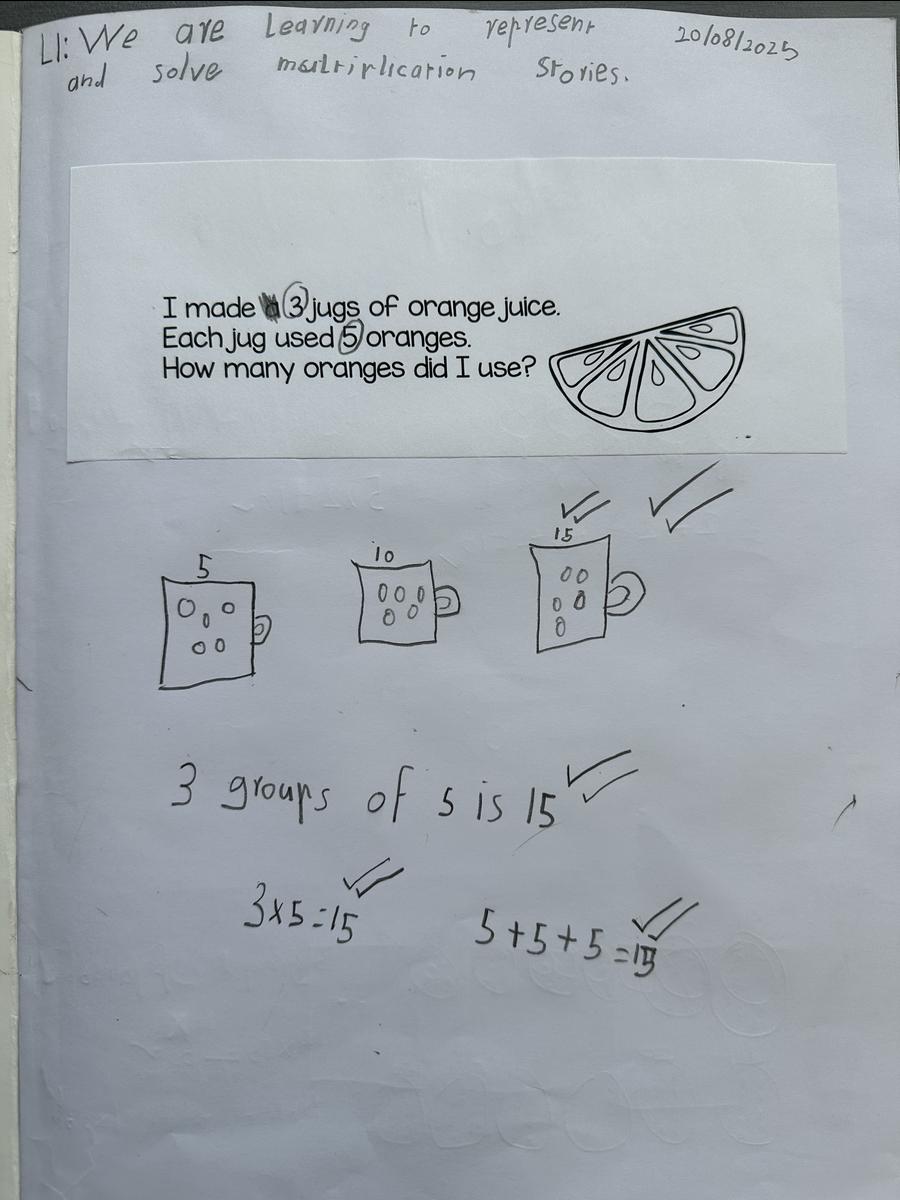 LI: We are learning to represent 20/08/2025
and solve multiplication stories.
I made 3 jugs of orange juice.
Each jug used 5 oranges.
How many oranges did I use?
5 10 15
3 groups of 5 is 15
3×5=15 5+5+5=15